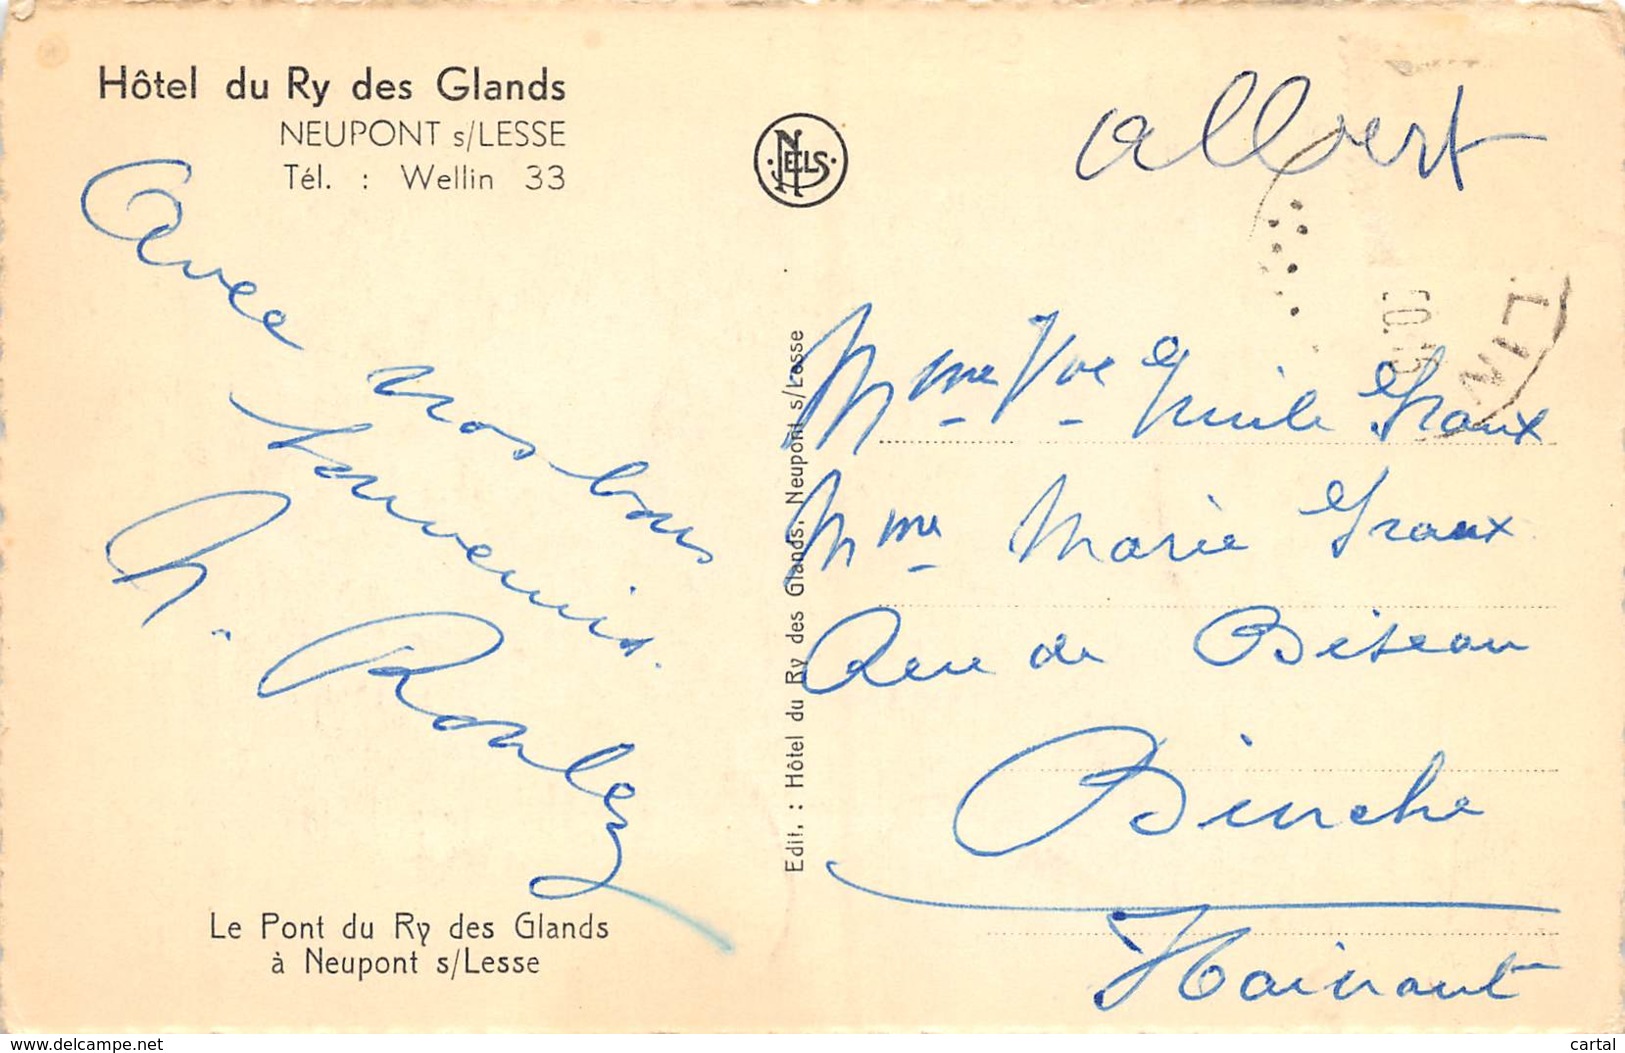 Hôtel du Ry des Glands
NEUPONT s/LESSE
Tél. : Wellin 33
Avec nos bons
souvenirs.
Roulez
Le Pont du Ry des Glands
à Neupont s/Lesse
NELS
Edit. : Hôtel du Ry des Glands, Neupont s/Lesse
Albert
LIN
Mme Vve Emile Graux
Mme Marie Graux
Rue de Biseau
Binche
Hainaut
www.delcampe.net
cartal